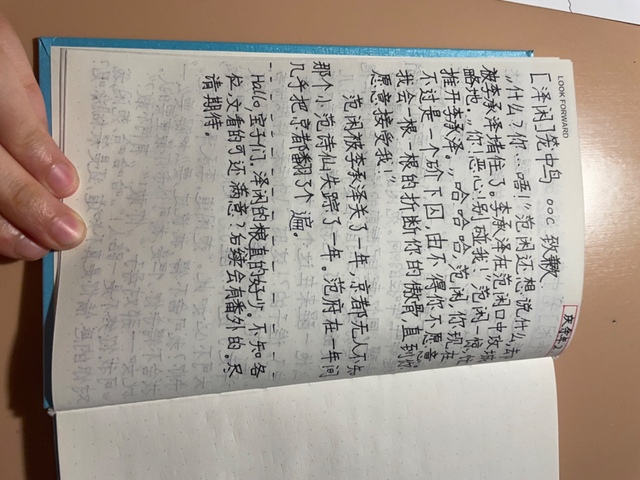 LOOK FORWARD
庆余年
[泽闲]笼中鸟 ooc 致歉
"什么?你…唔!"范闲还想说什么,却
被李承泽堵住了。李承泽在范闲口中攻城
略地。"你恶心!别碰我!"范闲一
推开李承泽。"哈哈哈,范闲,你现在
不过是一个阶下囚,由不得你不愿意
我会一根一根的折断你的傲骨直到你
愿意接受我!"
范闲被李承泽关了一年,京都无人不知
那个小范诗仙失踪了一年。范府在一年间
几乎把京都翻了个遍。
Hallo,宝子们,泽闲的粮真的好少。不知各
位文看的可还满意?后续会有番外的。尽
请期待。